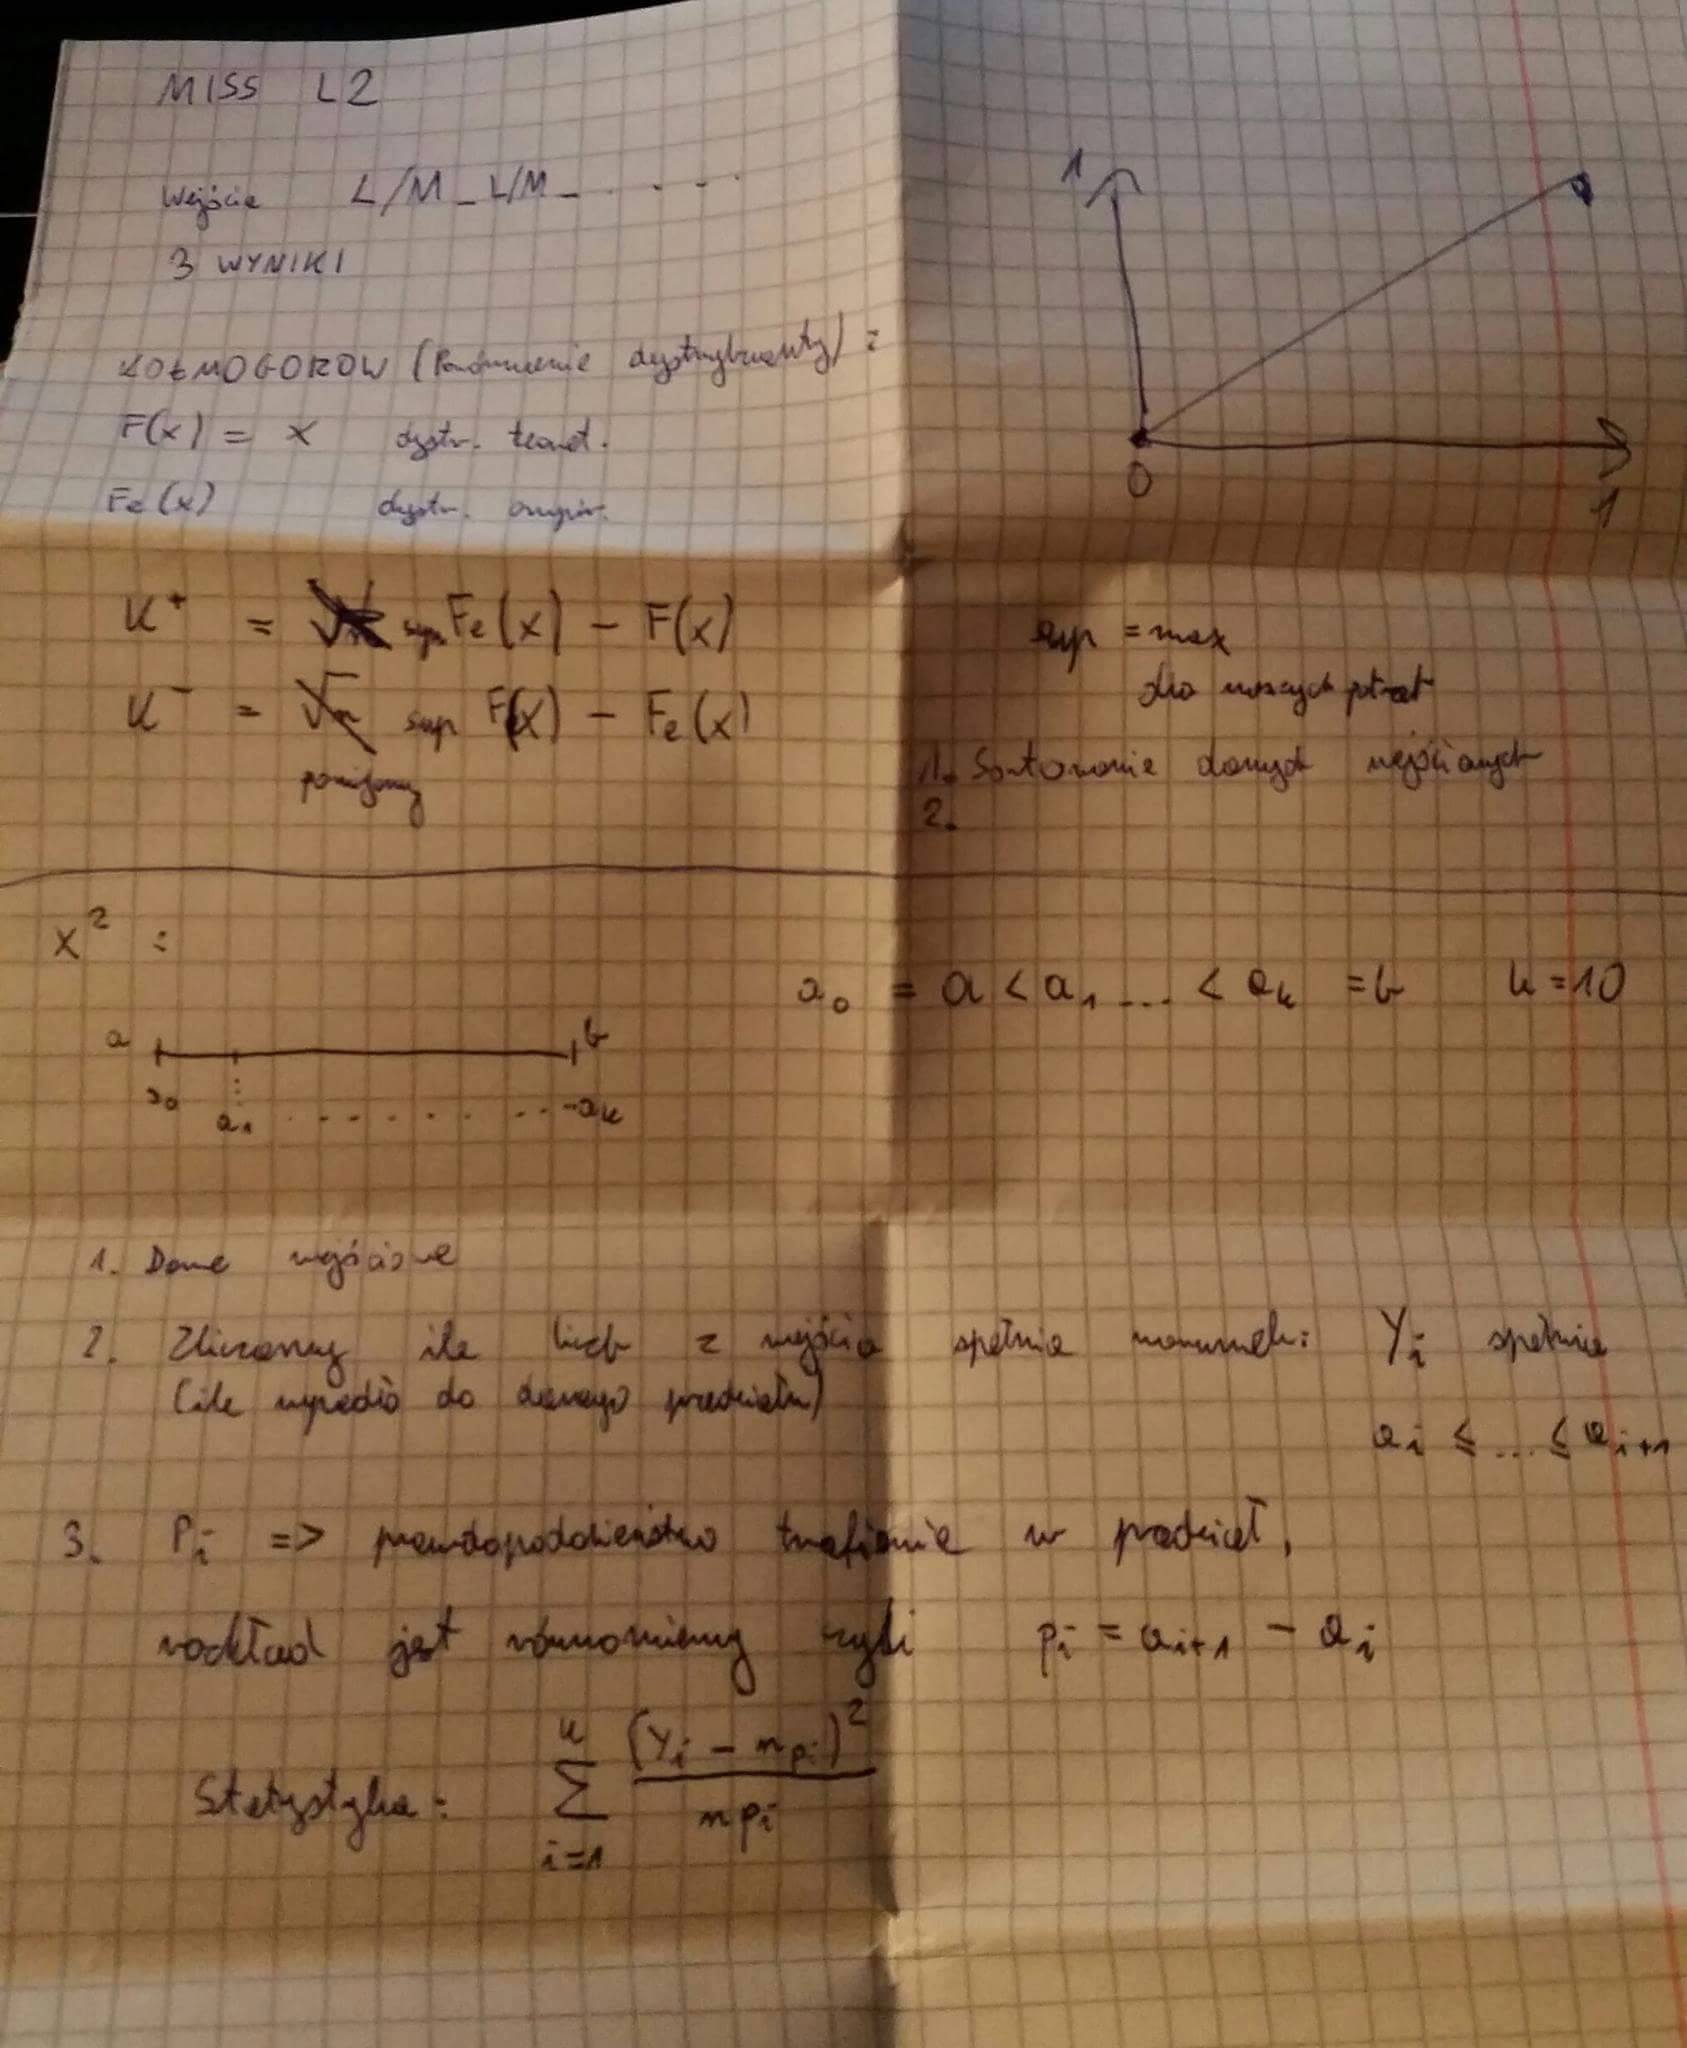 MISS L2
Wejście L/M_L/M_.....
3 WYNIKI
KOŁMOGOROW (Porównanie dystrybuanty) :
F(x) = x dystr. teoret.
Fe(x) dystr. empir.
1
0
1
K⁺ = √n sup Fe(x) - F(x)
K⁻ = √n sup F(x) - Fe(x)
pomijamy
sup = max
dla naszych potrzeb
1. Sortowanie danych wejściowych
2.
X² :
a₀ = a < a₁ ... < aₖ = b k = 10
a b
a₀ a₁ ........ aₖ
1. Dane wejściowe
2. Zliczamy ile liczb z wejścia spełnia warunek: Yᵢ spełnia
(ile wpadło do danego przedziału)
aᵢ ≤ ... ≤ aᵢ₊₁
3. Pᵢ => prawdopodobieństwo trafienia w przedział,
rozkład jest równomierny czyli pᵢ = aᵢ₊₁ - aᵢ
Statystyka: k ∑ i=1 (Yᵢ - npᵢ)² / npᵢ